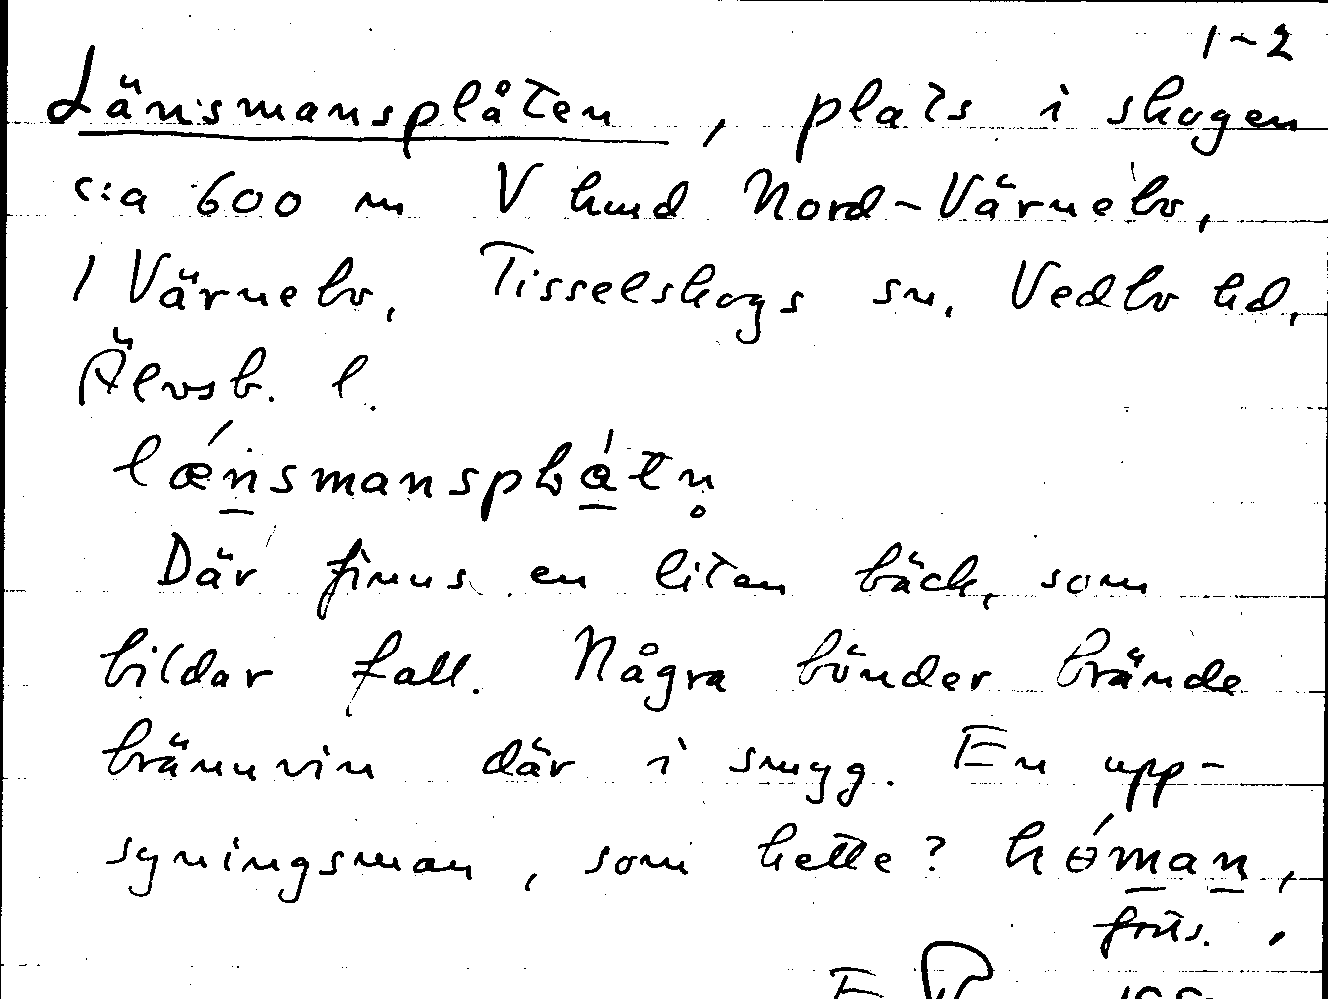 1-2
Länsmansplåten, plats i skogen
c:a 600 m V hmd Nord-Värnebo,
1 Värnebo, Tisselskogs sn, Vedbo hd,
Älvsb. l.
lǽnsmansplåtn̥
Där finns en liten bäck, som
bildar fall. Några bönder brände
brännvin där i smygg. En upp-
syningsman, som hette? hóman,
forts.